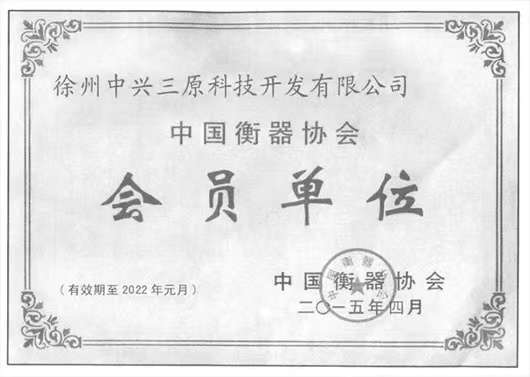 徐州中兴三原科技开发有限公司
中国衡器协会
会员单位
（有效期至2022年元月）
中国衡器协会
二〇一五年四月
中国衡器协会